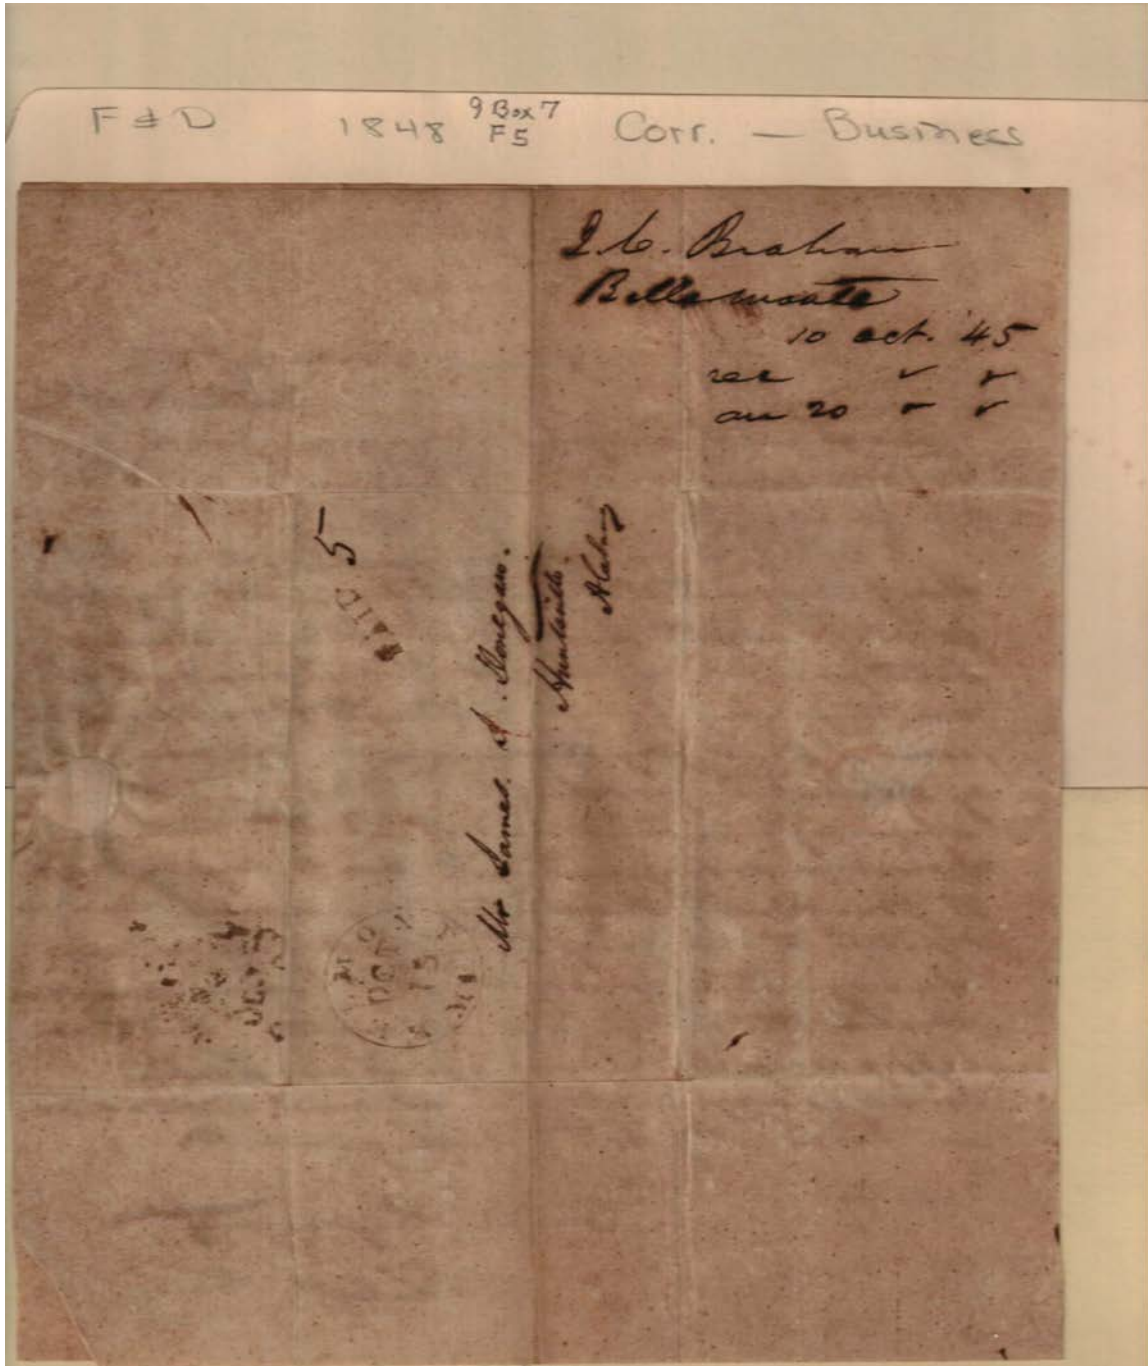 F & D 1848 9 Box 7 Corr. — Business
F5
J. C. Braham
Bellemonte
10 oct. '45
rec ✓ ✓
an 20 ✓ ✓
PAID 5
Mr James. J. Donegan.
Huntsville.
Alabama
OCT
15